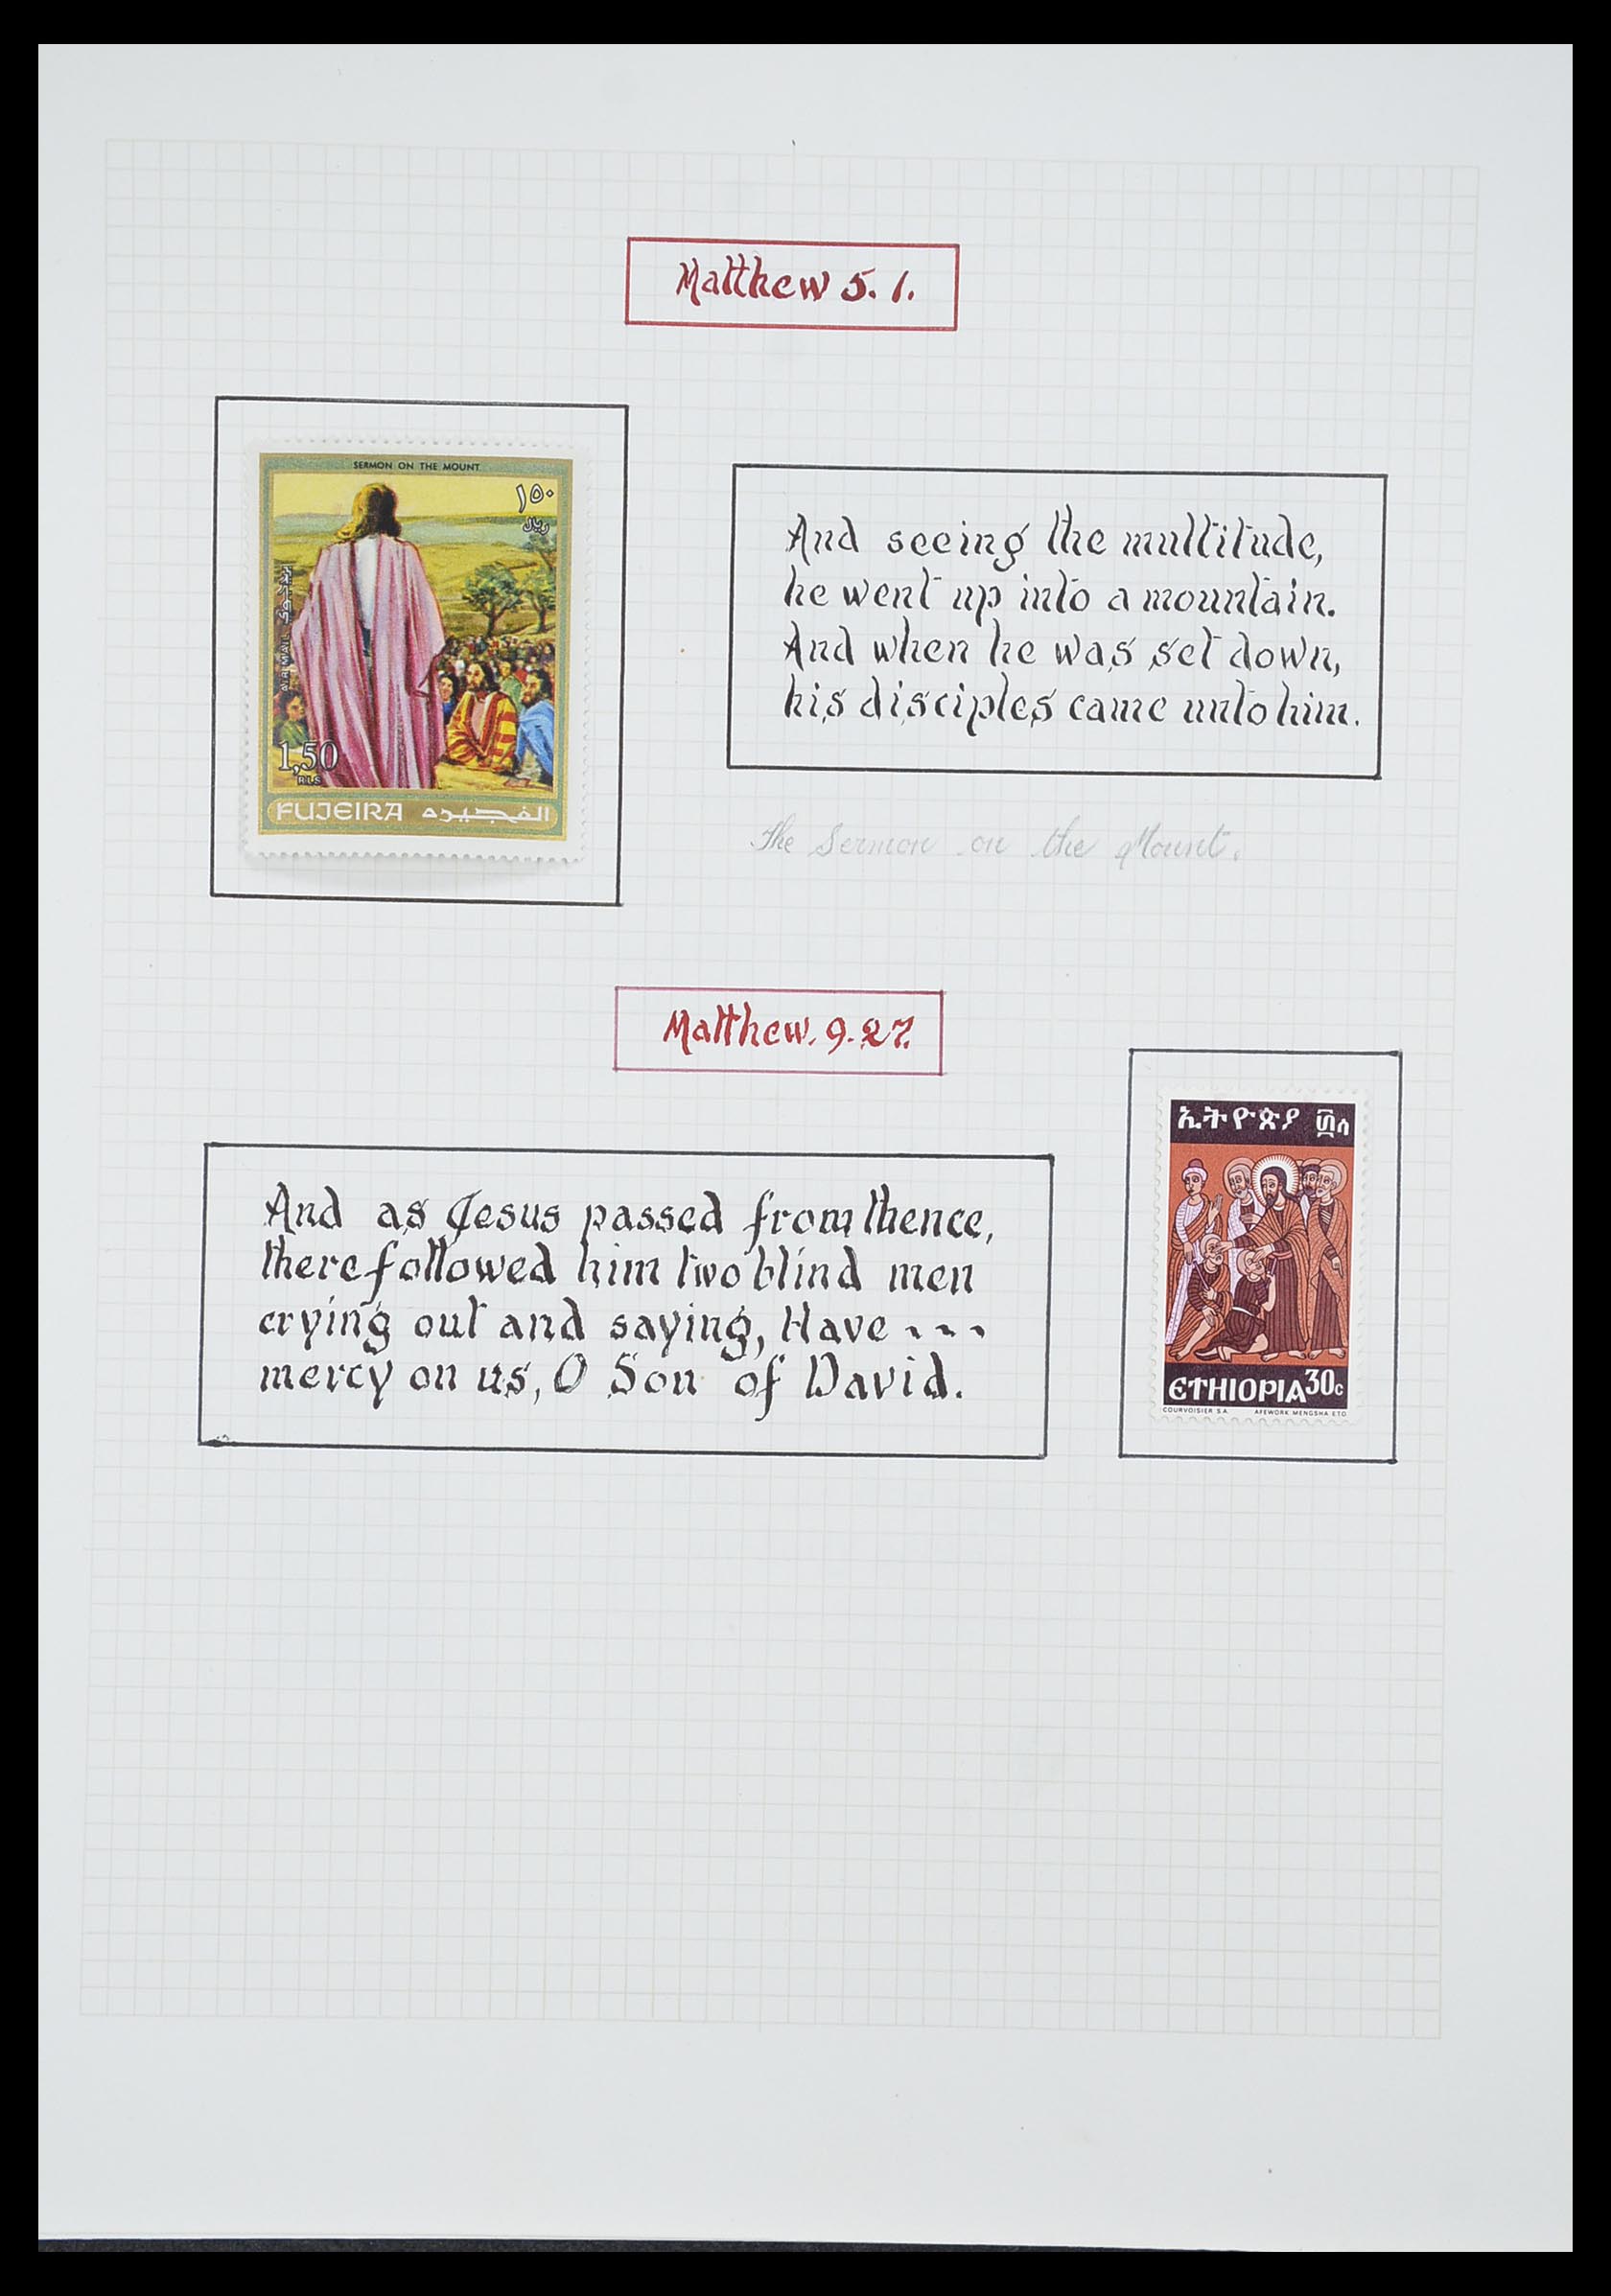 Matthew 5. 1.
SERMON ON THE MOUNT
١٥٠
ريال
AIRMAIL
1,50
RLS
FUJEIRA الفجيره
And seeing the multitude,
he went up into a mountain.
And when he was set down,
his disciples came unto him.
The Sermon on the Mount.
Matthew. 9. 27.
And as Jesus passed from thence,
there followed him two blind men
crying out and saying, Have - - -
mercy on us, O Son of David.
ኢትዮጵያ ፴ሳ
ETHIOPIA 30c
COURVOISIER S.A. AFEWORK MENGSHA ETD